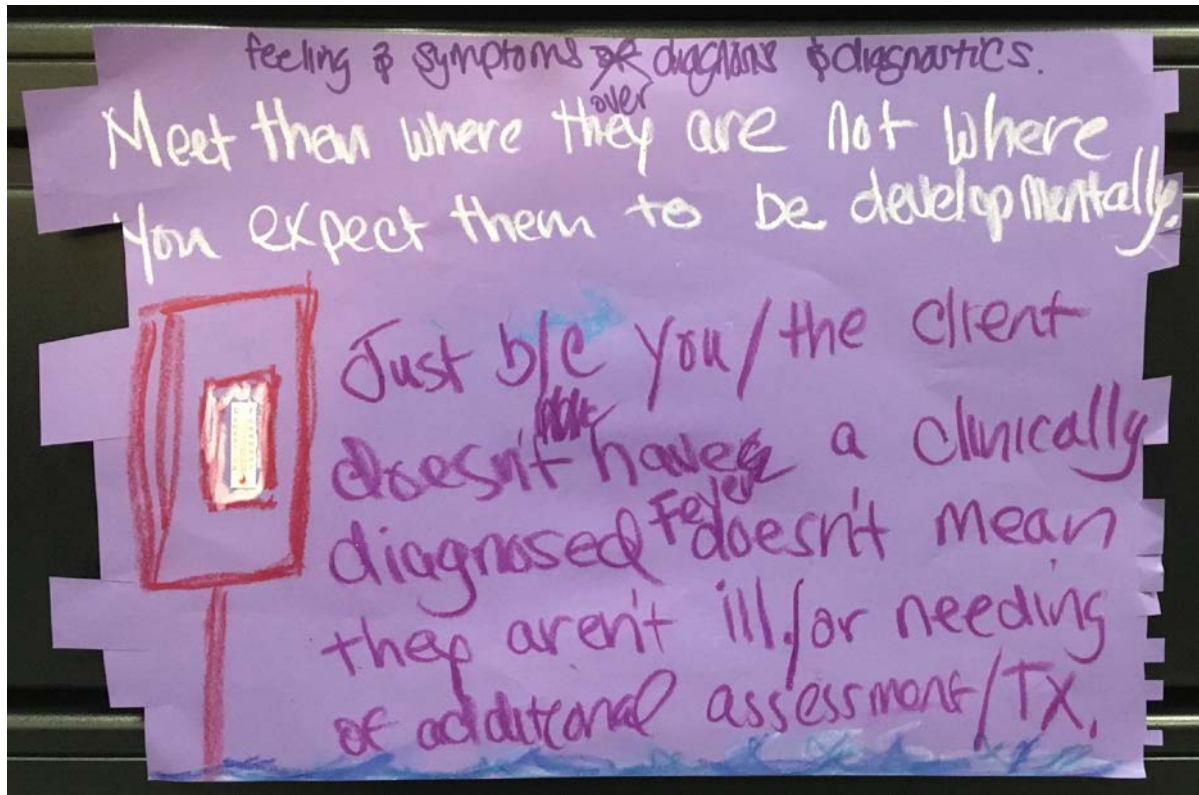 feeling & symptoms over diagnosis & diagnostics.
Meet them where they are not where
you expect them to be developmentally.
Just b/c you/the client
doesn't have a clinically
diagnosed Fever doesn't mean
they aren't ill/or needing
of additional assessment/TX.